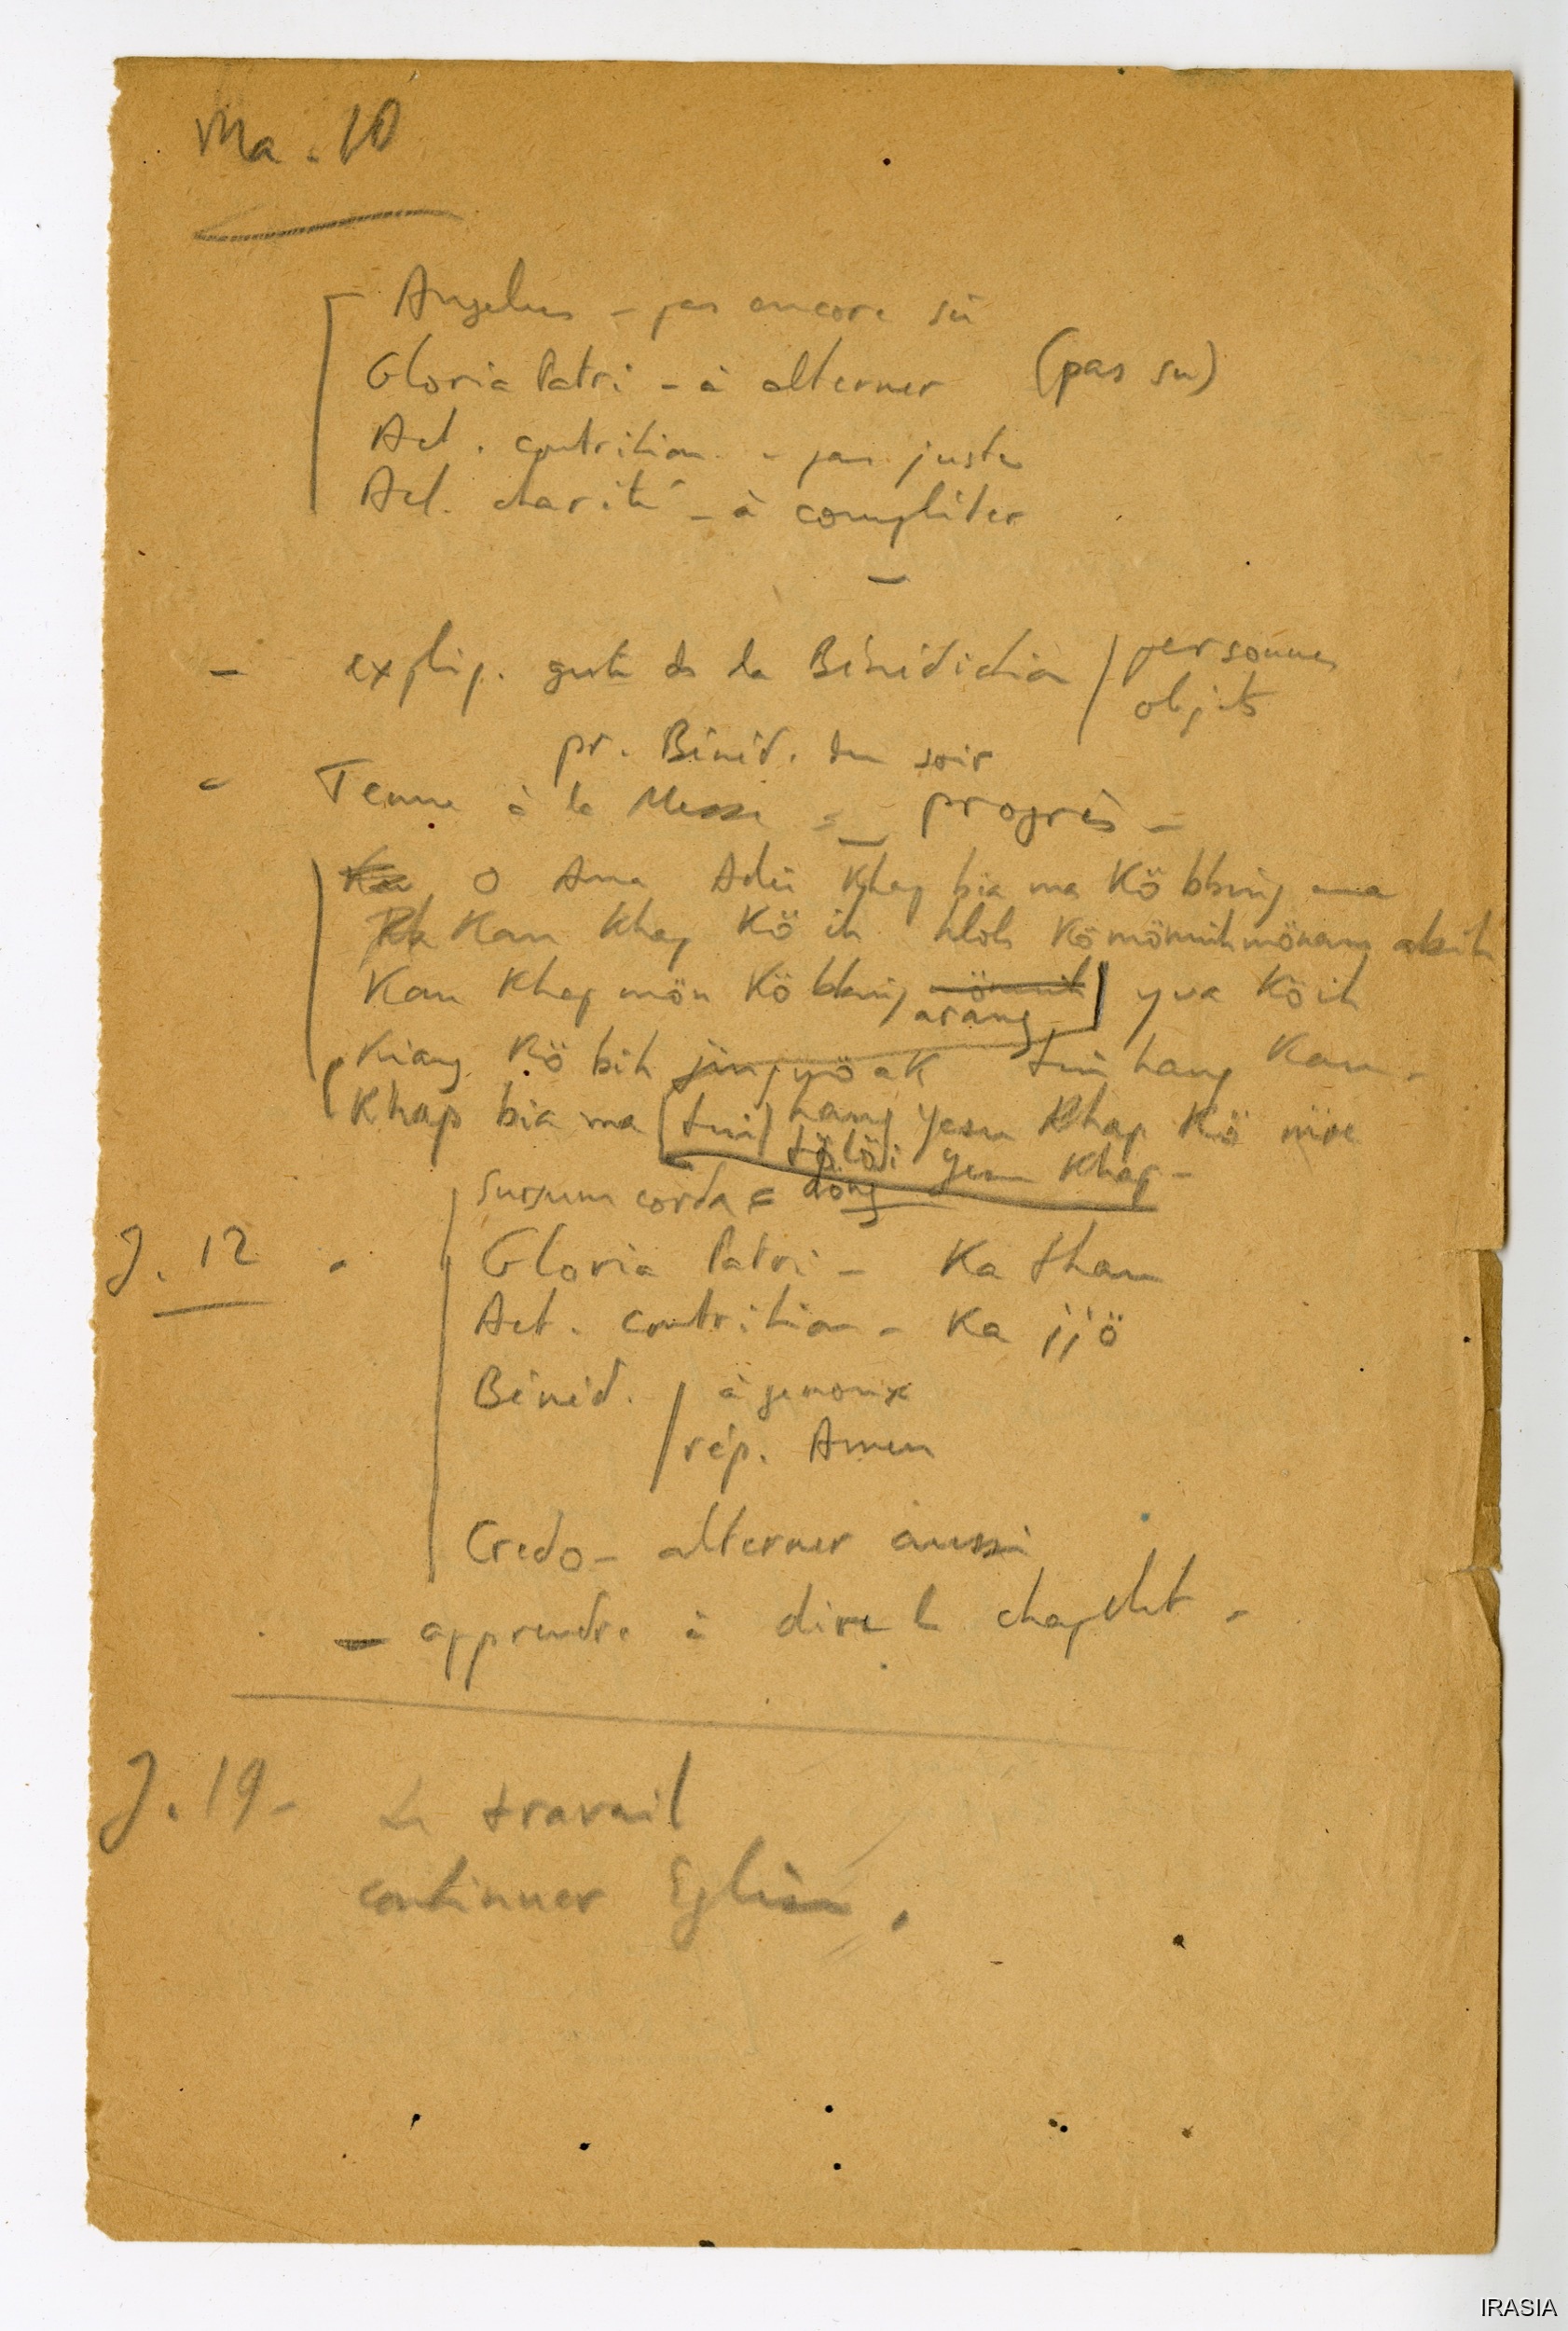 Ma. 10
Angelus - pas encore su
Gloria Patri - à alterner (pas su)
Act. contrition - pas juste
Act. charité - à compléter
- explip. geste de la Bénédiction / personnes
objets
pr. Bénéd. du soir
- Tenue à la Messe = progrès -
O Ama Adei Khap bia ma Kö bbing
Kan Khap Kö ih hloh Kö mönuih mönang abih
Kan Khap mön Kö bbing arang yua Kö ih
Kiang Kö bih jing yöak tui hang Kan -
Khap bia ma (tui) hang Yesu Khap Kö
tölöi Yesu Khap -
Sursum corda = döng
J. 12 - Gloria Patri - Ka tham
Act. contrition - Ka jjö
Bénéd. / à genoux
/ rép. Amen
Credo - alterner aussi
- apprendre à dire le chapelet -
J. 19 - Le travail
continuer Eglise.
IRASIA